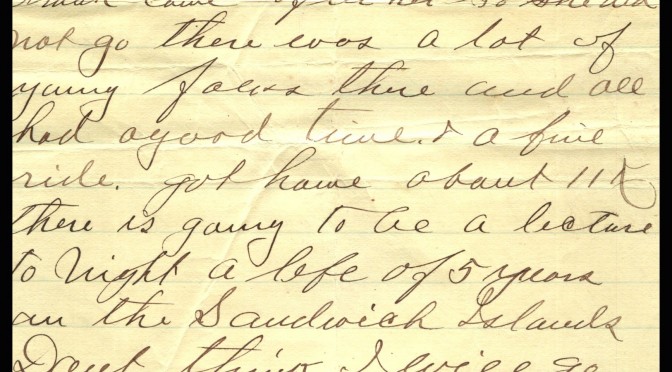 come after her so she did
not go there was a lot of
young folks there and all
had a good time. & a fine
ride. got home about 11
there is going to be a lecture
to night a life of 5 years
on the Sandwich Islands
Dont think I will go